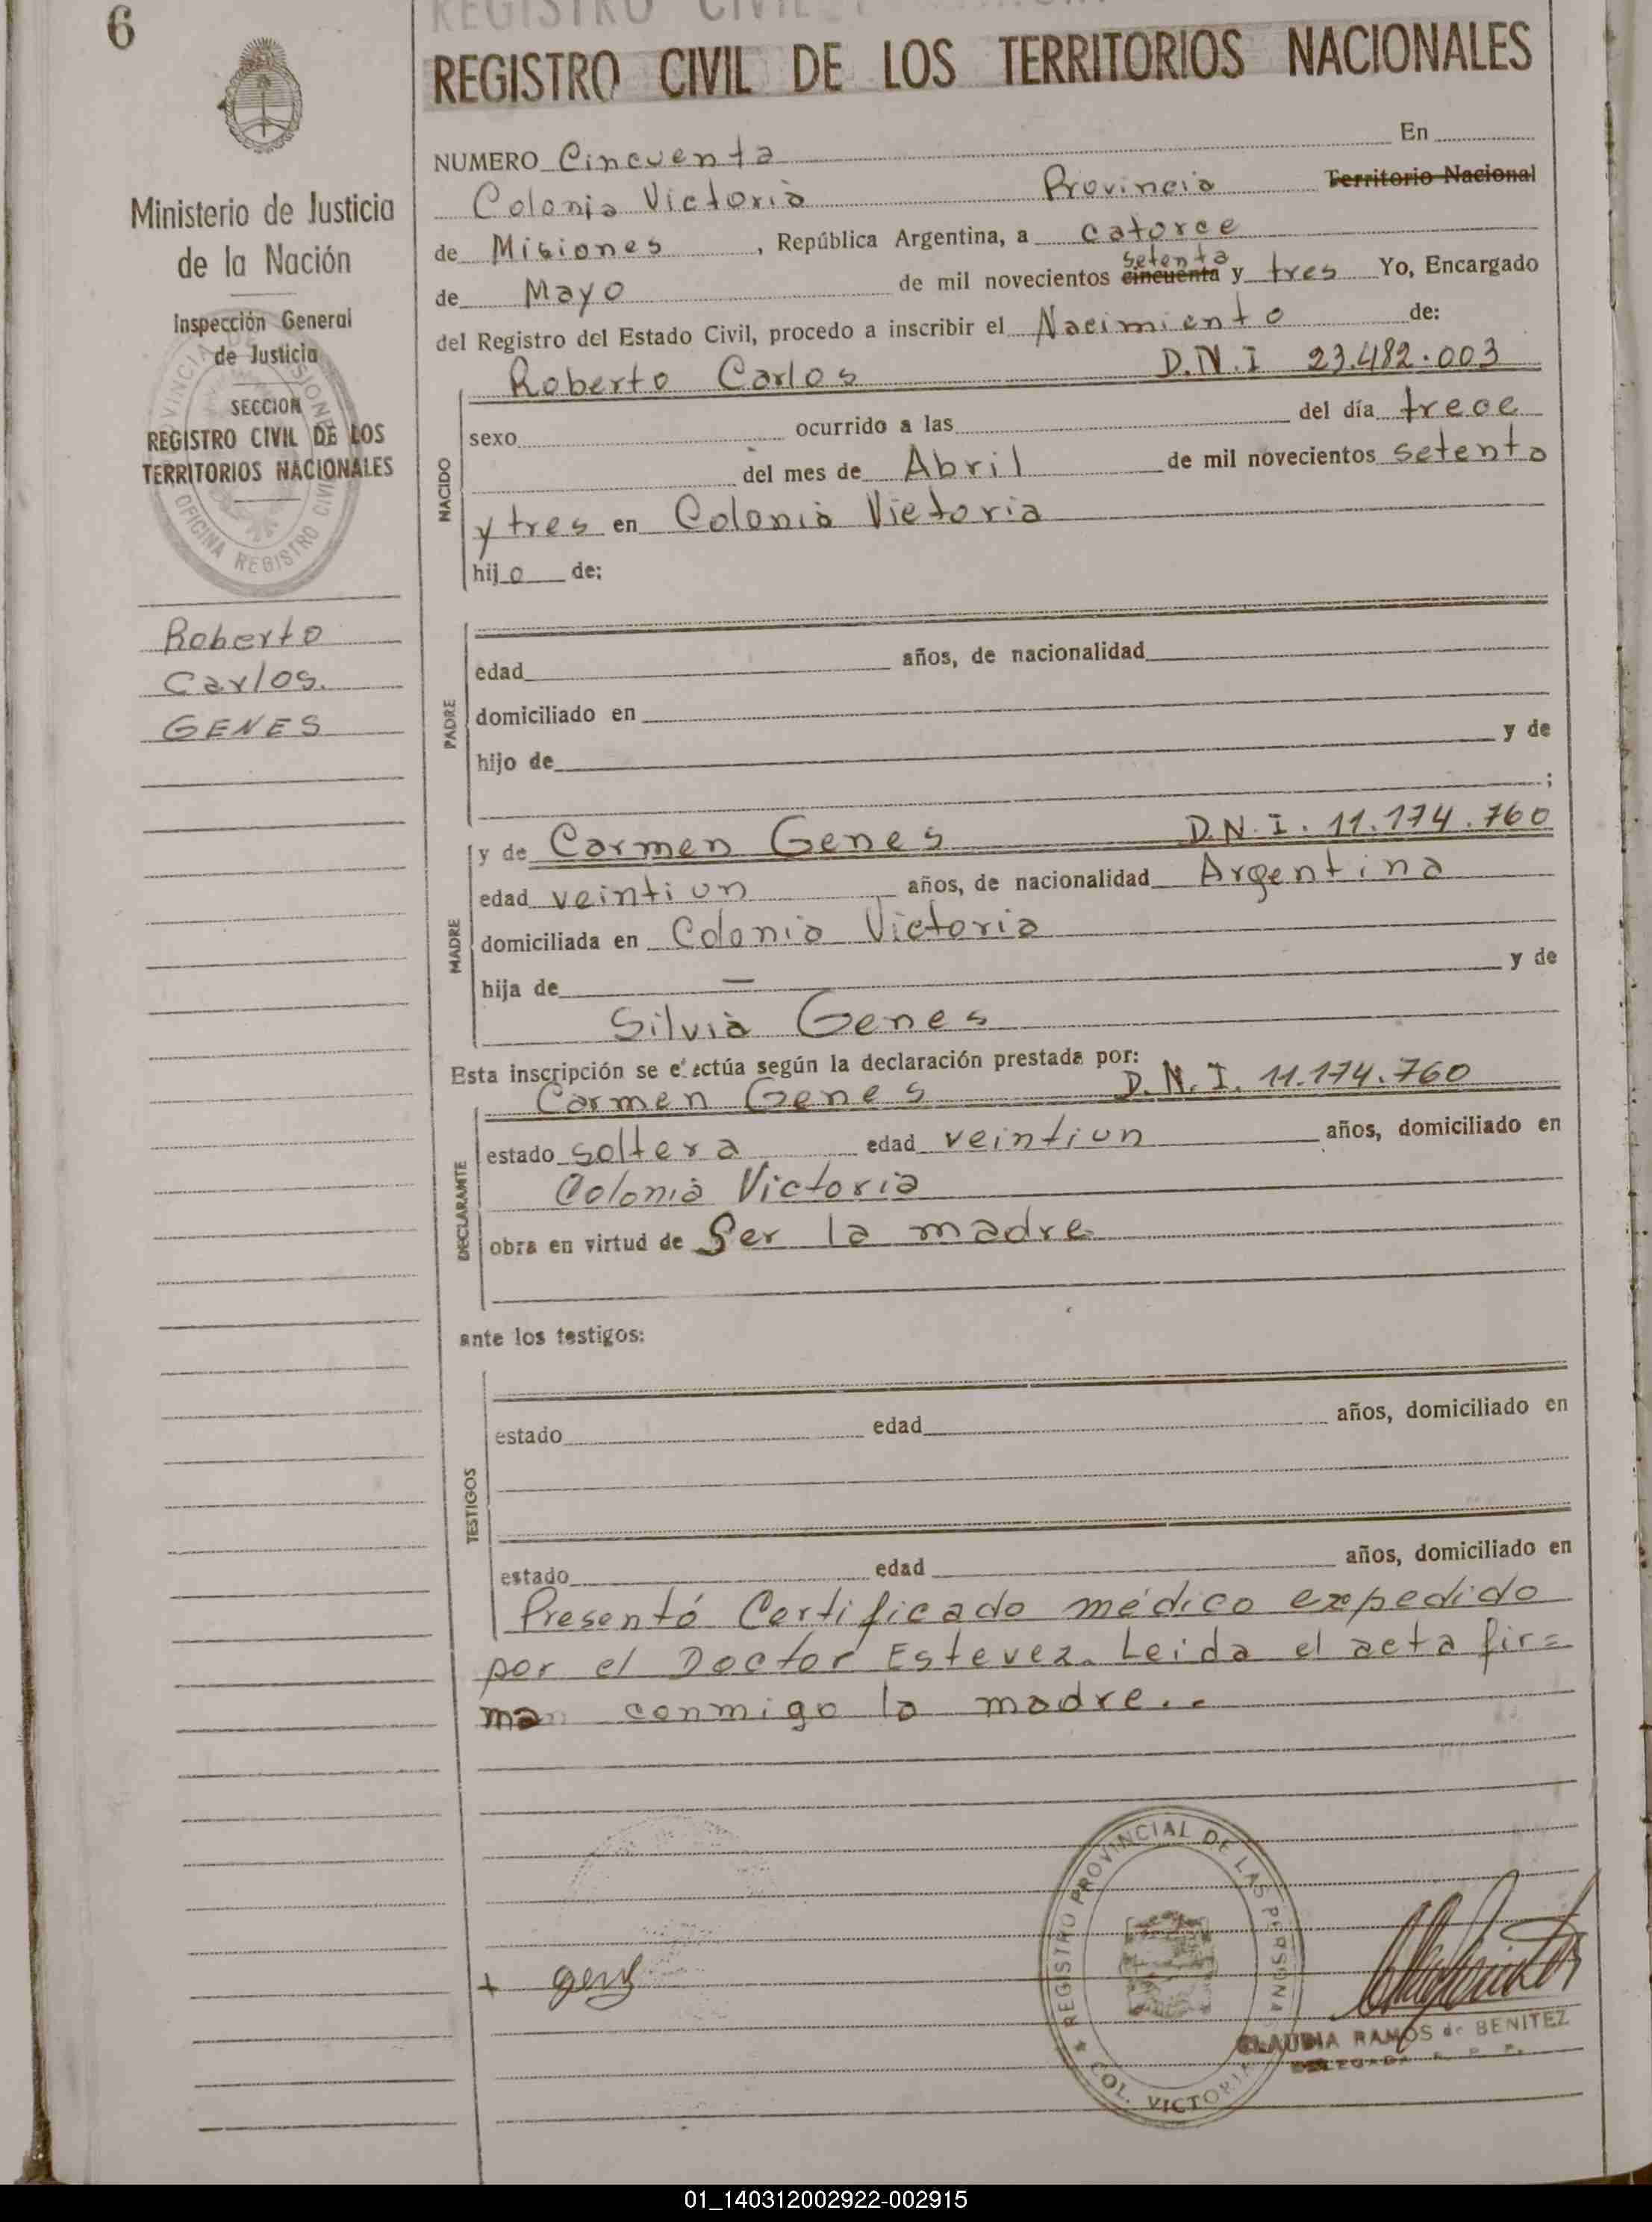 6
REGISTRO CIVIL
REGISTRO CIVIL DE LOS TERRITORIOS NACIONALES
Ministerio de Justicia
de la Nación
Inspección General
de Justicia
SECCION
REGISTRO CIVIL DE LOS
TERRITORIOS NACIONALES
OFICINA REGISTRO CIVIL
Roberto
Carlos.
GENES
NUMERO Cincuenta En
Colonia Victoria Provincia Territorio Nacional
de Misiones, República Argentina, a catorce
setenta
de Mayo de mil novecientos cincuenta y tres Yo, Encargado
del Registro del Estado Civil, procedo a inscribir el Nacimiento de:
Roberto Carlos D.N.I 23.482.003
NACIDO
sexo ocurrido a las del día trece
del mes de Abril de mil novecientos setenta
y tres en Colonia Victoria
hijo de:
PADRE
edad años, de nacionalidad
domiciliado en
hijo de y de
;
MADRE
y de Carmen Genes D.N.I. 11.174.760
edad veintiun años, de nacionalidad Argentina
domiciliada en Colonia Victoria
hija de — y de
Silvia Genes
Esta inscripción se efectúa según la declaración prestada por:
Carmen Genes D.N.I. 11.174.760
DECLARANTE
estado soltera edad veintiun años, domiciliado en
Colonia Victoria
obra en virtud de Ser la madre
ante los testigos:
TESTIGOS
estado edad años, domiciliado en
estado edad años, domiciliado en
Presentó Certificado médico expedido
por el Doctor Estevez. Leida el acta fir=
man conmigo la madre..
+ genes
REGISTRO PROVINCIAL DE LAS PERSONAS
COL. VICTORIA
CLAUDIA RAMOS de BENITEZ
DELEGADA R. P. P.
01_140312002922-002915